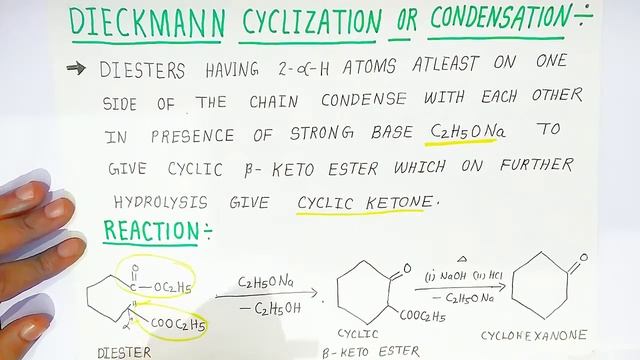 DIECKMANN CYCLIZATION OR CONDENSATION÷
→ DIESTERS HAVING 2-α-H ATOMS ATLEAST ON ONE
SIDE OF THE CHAIN CONDENSE WITH EACH OTHER
IN PRESENCE OF STRONG BASE C2H5ONa TO
GIVE CYCLIC β-KETO ESTER WHICH ON FURTHER
HYDROLYSIS GIVE CYCLIC KETONE.
REACTION÷
O
C—OC2H5
α
COOC2H5
DIESTER
C2H5ONa
— C2H5OH
O
COOC2H5
CYCLIC
β-KETO ESTER
Δ
(i) NaOH (ii) HCl
— C2H5ONa
O
CYCLOHEXANONE